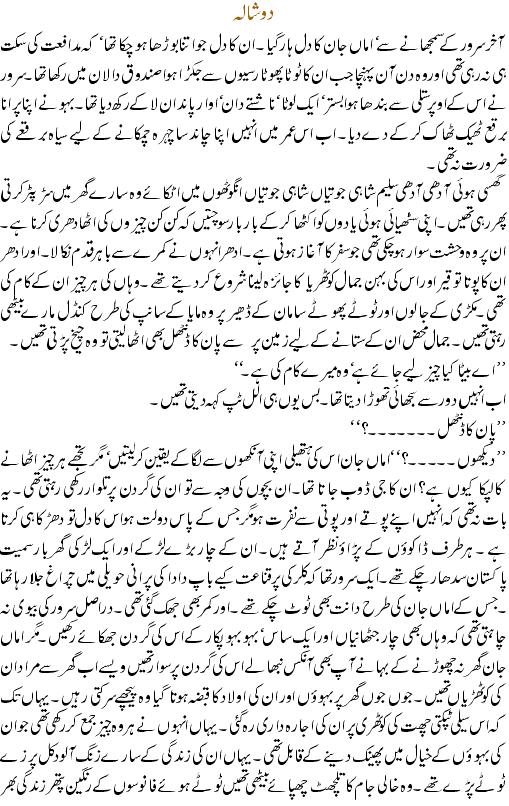 دوشالہ
آخر سرور کے سمجھانے سے’ اماں جان کا دل ہار گیا۔ ان کا دل جو اتنا بوڑھا ہو چکا تھا‘ کہ مدافعت کی سکت
ہی نہ رہی تھی اور وہ دن آن پہنچا جب ان کا ٹوٹا پھوٹا رسیوں سے جکڑا ہوا صندوق دالان میں رکھا تھا۔ سرور
نے اس کے اوپر ستلی سے بندھا ہوا بستر’ ایک لوٹا‘ ناشتے دان’ اوار پاندان لا کے رکھ دیا تھا۔ بہو نے اپنا پرانا
برقع ٹھیک ٹھاک کر کے دے دیا۔ اب اس عمر میں انہیں اپنا چاند سا چہرہ چمکانے کے لیے سیاہ برقعے کی
ضرورت نہ تھی۔
گھسی ہوئی آدھی آدھی سلیم شاہی جوتیاں شاہی جوتیاں انگوٹھوں میں اٹکائے وہ سارے گھر میں سڑ پڑ کرتی
پھر رہی تھیں۔ اپنی سٹھیائی ہوئی یادوں کو اکٹھا کر کے بار بار سوچتیں کہ کن کن چیزوں کی اٹھا دھری کرنا ہے۔
ان پر وہ وحشت سوار ہو چکی تھی جو سفر کا آغاز ہوتی ہے۔ ادھر انہوں نے کمرے سے باہر قدم نکالا۔ اور ادھر
ان کا پوتا توقیر اور اس کی بہن جمال کوٹھریا کا جائزہ لینا شروع کر دیتے تھے۔ وہاں کی ہر چیز ان کے کام کی
تھی۔ مکڑی کے جالوں اور ٹوٹے پھوٹے سامان کے ڈھیر پر وہ مایا کے سانپ کی طرح کنڈل مارے بیٹھی
رہتی تھیں۔ جمال محض ان کے ستانے کے لیے زمین پر سے پان کا ڈنٹھل بھی اٹھا لیتی تو وہ چیخ پڑتی تھیں۔
’’اے بیٹا کیا چیز لیے جائے ہے‘ وہ میرے کام کی ہے۔‘‘
اب انہیں دور سے سجھائی تھوڑا دیتا تھا۔ بس یوں ہی الل ٹپ کہہ دیتی تھیں۔
’’پان کا ڈنٹھل ۔۔۔۔۔۔۔؟‘‘
’’دیکھوں ۔۔۔۔۔؟‘‘ اماں جان اس کی ہتھیلی اپنی آنکھوں سے لگا کے یقین کر لیتیں‘ مگر تجھے ہر چیز اٹھانے
کا لپکا کیوں ہے؟ ان کا جی ڈوب جاتا تھا۔ ان بچوں کی وجہ سے تو ان کی گردن پر تلوار رکھی رہتی تھی۔ یہ
بات نہ تھی کہ انہیں اپنے پوتے اور پوتی سے نفرت ہو مگر جس کے پاس دولت ہو اس کا دل تو دھڑکا ہی کرتا
ہے۔ ہر طرف ڈاکوؤں کے پڑاؤ نظر آتے ہیں۔ ان کے چار بڑے لڑکے اور ایک لڑکی گھر بار سمیت
پاکستان سدھار چکے تھے۔ ایک سرور تھا کہ کلرکی پر قناعت کیے باپ دادا کی پرانی حویلی میں چراغ جلا رہا تھا
۔ جس کے اماں جان کی طرح دانت بھی ٹوٹ چکے تھے۔ اور کمر بھی جھک گئی تھی۔ دراصل سرور کی بیوی نہ
چاہتی تھی کہ وہاں بھی چار جٹھانیاں اور ایک ساس‘ بہو بہو پکار کے اس کی گردن جھکائے رکھیں۔ مگر اماں
جان گھر نہ چھوڑنے کے بہانے آپ بھی آنکس نبھالے اس کی گردن پر سوار تھیں ویسے اب گھر سے مراد ان
کی کوٹھڑیاں تھیں۔ جوں جوں گھر پر بہوؤں اور ان کی اولاد کا قبضہ ہوتا گیا وہ پیچھے سرکتی رہیں۔ یہاں تک
کہ اس سیلی ٹپکتی چھت کی کوٹھری پر ان کی اجارہ داری رہ گئی۔ یہاں انہوں نے ہر وہ چیز جمع کر رکھی تھی جو ان
کی بہوؤں کے خیال میں پھینک دینے کے قابل تھی۔ یہاں ان کی زندگی کے سارے زنگ آلود کل پرزے
ٹوٹے پڑے تھے۔ وہ خالی جام کا تلچھٹ چھپائے بیٹھی تھیں ٹوٹے ہوئے فانوسوں کے رنگین پتھر زندگی بھر